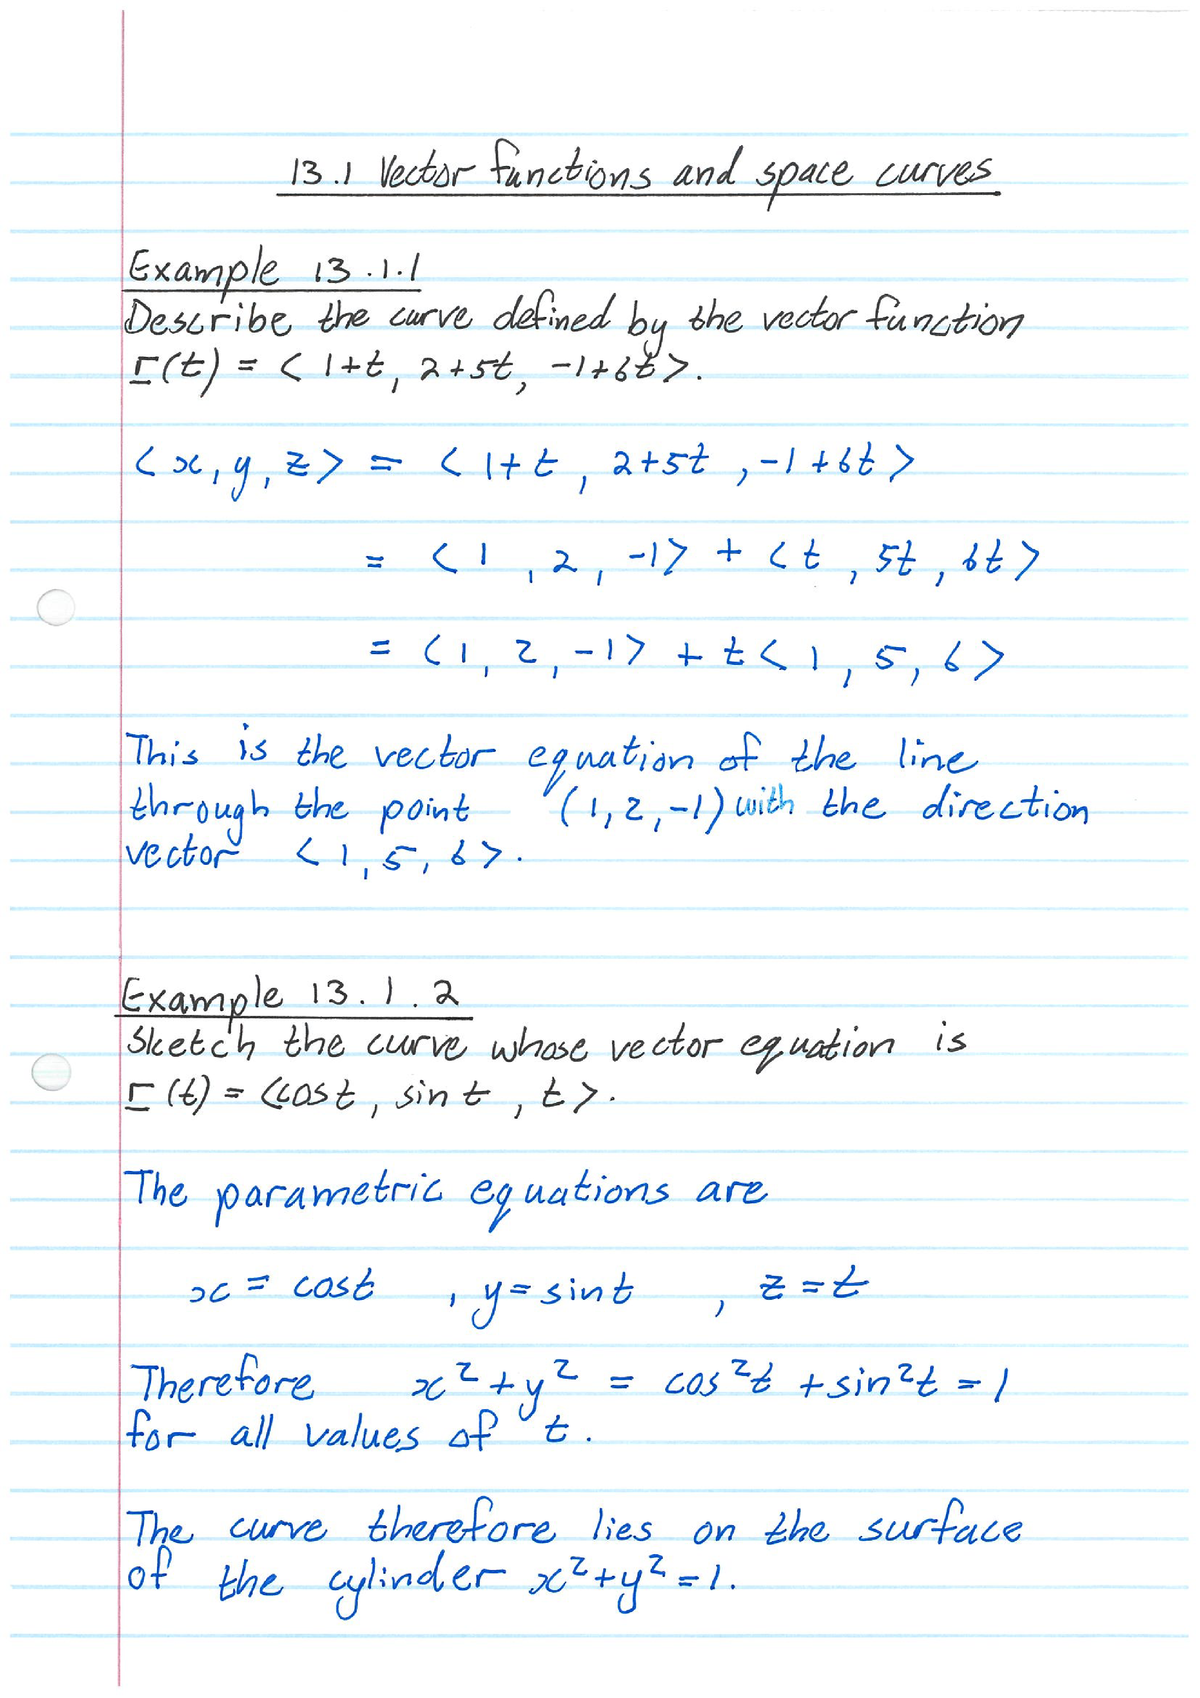 13.1 Vector functions and space curves
Example 13.1.1
Describe the curve defined by the vector function
r(t) = < 1+t, 2+5t, -1+6t>.
<x, y, z> = < 1+t, 2+5t, -1+6t>
= <1, 2, -1> + <t, 5t, 6t>
= <1, 2, -1> + t<1, 5, 6>
This is the vector equation of the line
through the point (1, 2, -1) with the direction
vector <1, 5, 6>.
Example 13.1.2
Sketch the curve whose vector equation is
r(t) = <cost, sin t, t>.
The parametric equations are
x = cost, y = sint, z = t
Therefore x² + y² = cos²t + sin²t = 1
for all values of t.
The curve therefore lies on the surface
of the cylinder x² + y² = 1.